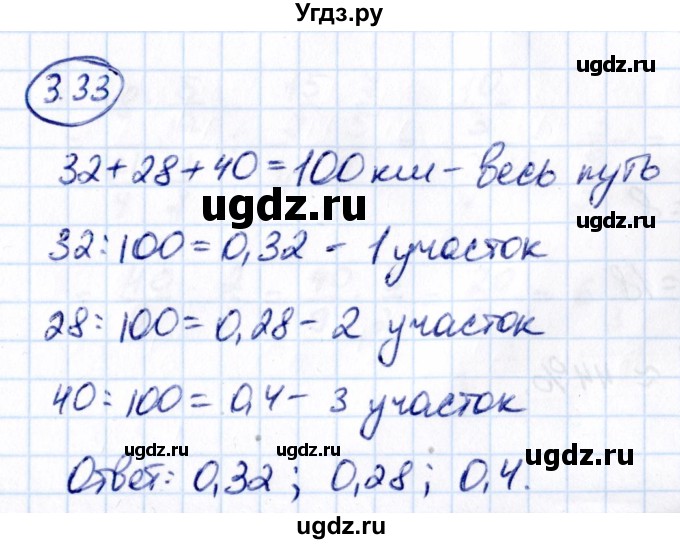 Угдз.ру
ugdz.ru
3.33
32+28+40=100км - весь путь
ugdz.ru
32:100=0,32 - 1 участок
ugdz.ru
28:100=0,28 - 2 участок
ugdz.ru
40:100=0,4 - 3 участок
ugdz.ru ugdz.ru
Ответ: 0,32; 0,28; 0,4.
ugdz.ru